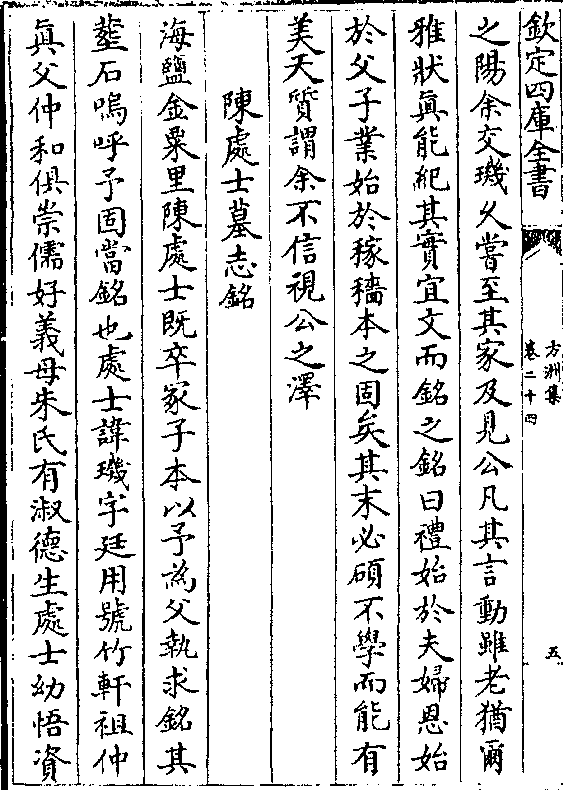 欽定四庫全書
方洲集
卷二十四
五
之陽余交璣久嘗至其家及見公凡其言動雖老猶爾
雅狀眞能紀其實宜文而銘之銘曰禮始於夫婦恩始
於父子業始於稼穡本之固矣其末必碩不學而能有
美天質謂余不信視公之澤
陳處士墓志銘
海鹽金粟里陳處士既卒冡子本以予為父執求銘其
塟石嗚呼予固當銘也處士諱璣字廷用號竹軒祖仲
眞父仲和俱崇儒好義母朱氏有淑德生處士幼悟資